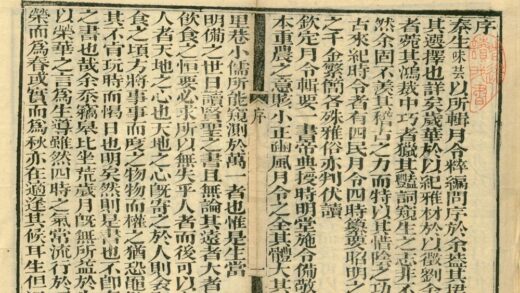 序
秦生味芸以所輯月令粹編問序於余益其
其選擇也詳矣歲華於以紀雅材於以徵劉
者菀其鴻裁中巧者獵其豔詞窺生之志非不
然余固不羨其稽古之力而特以其惜陰之
古來紀時令者有四民月令四時纂要昭明之
之千金纂簡各殊雅俗亦判伏讀
欽定月令輯要一書帝典授時明堂施令備哉
本重農之意賅小正豳風月令之全其體大其
序
里巷小儒所能窺測於萬一者也惟是生當
明備之世日讀聖之書且無論其遠者大者
飲食之恒要必求所以無失乎人者而後可以
人者天地之心也天地之心旣寄之於人則
食之頃方將事事而度之物物而權之猶恐
其不肯玩時而愒日也明矣然則是書也不
之書也哉余忝皋比坐荒歲月旣無所益於
以榮華之言爲生導雖然四時之氣常流行於
榮而爲春或實而爲秋亦在適逢其候耳生但